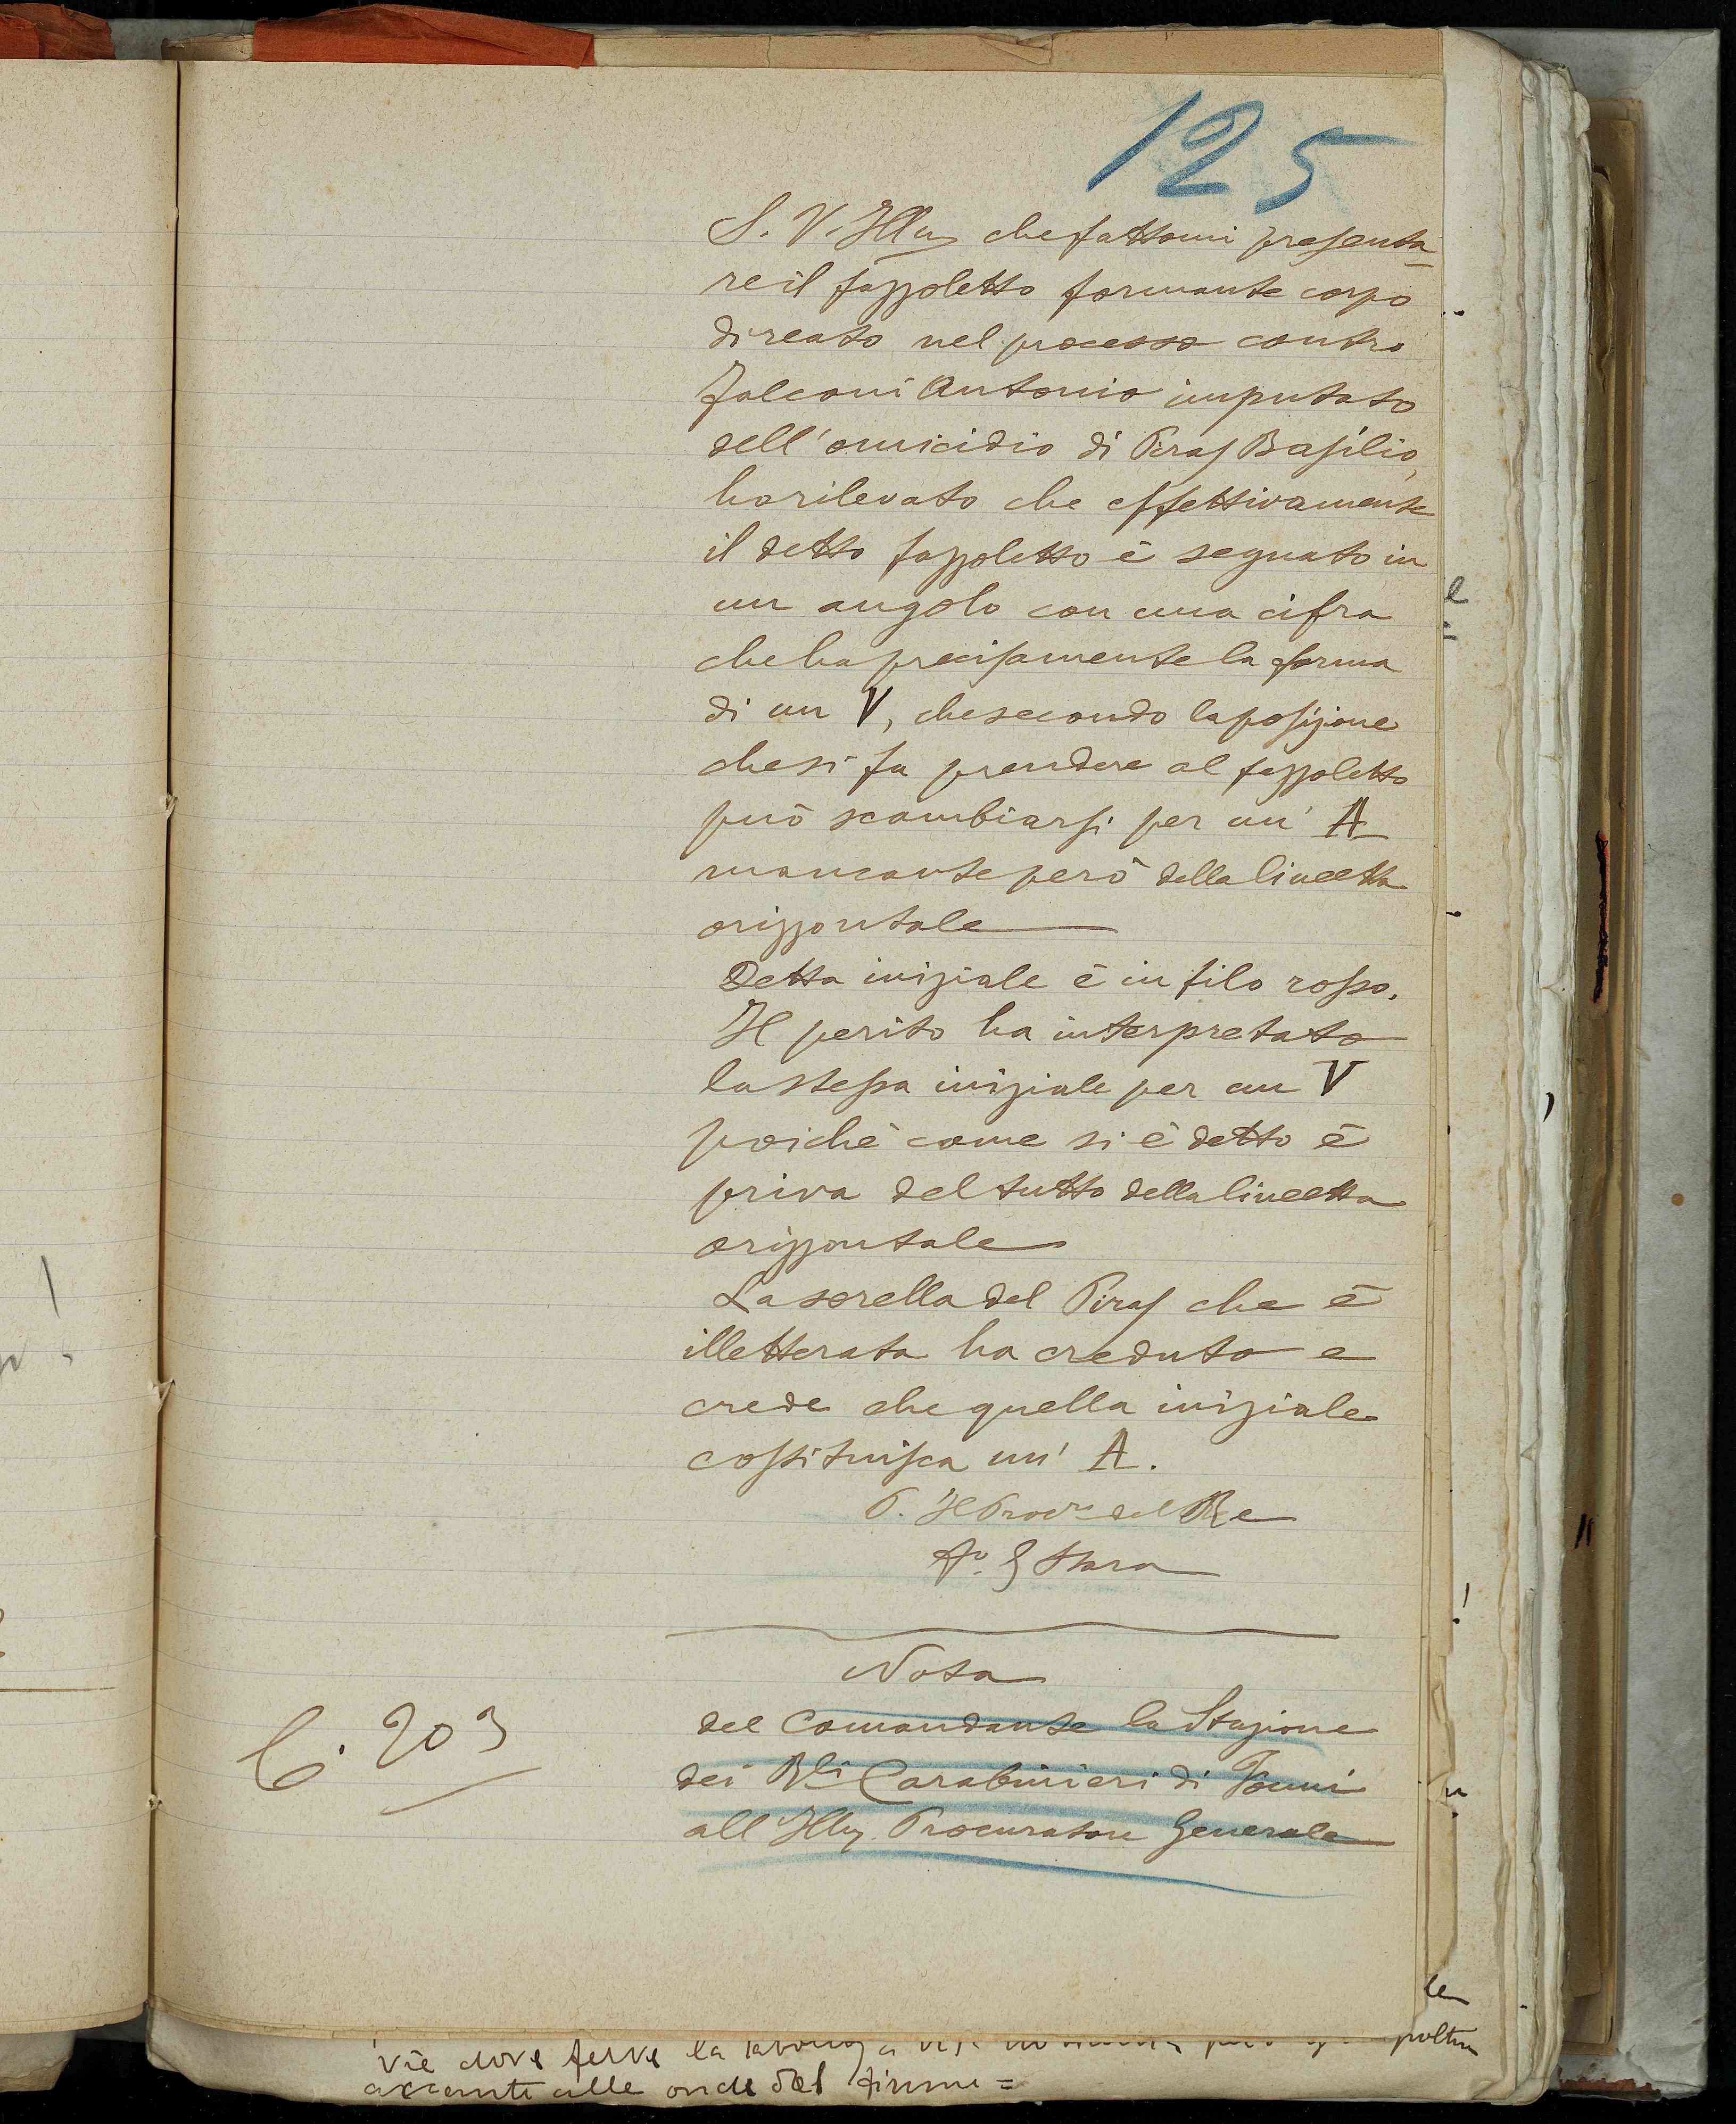 125
S. V. Illma che fattomi presenta
re il fazzoletto formante corpo
di reato nel processo contro
Falconi Antonio imputato
dell'omicidio di Piras Basilio,
ho rilevato che effettivamente
il detto fazzoletto è segnato in
un angolo con una cifra
che ha precisamente la forma
di un V, che secondo la posizione
che si fa prendere al fazzoletto
può scambiarsi per un' A
mancante però della lineetta
orizzontale
Detta iniziale è in filo rosso.
Il perito ha interpretato
la stessa iniziale per un V
poichè come si è detto è
priva del tutto della lineetta
orizzontale
La sorella del Piras che è
illetterata ha creduto e
crede che quella iniziale
costituisca un' A.
P. Il Procre del Re
Fo
Nota
C. 203
del Comandante la Stazione
dei Rli Carabinieri di Fonni
all' Illmo Procuratore Generale
vie dove ferve la
accanto alle onde del fiume =